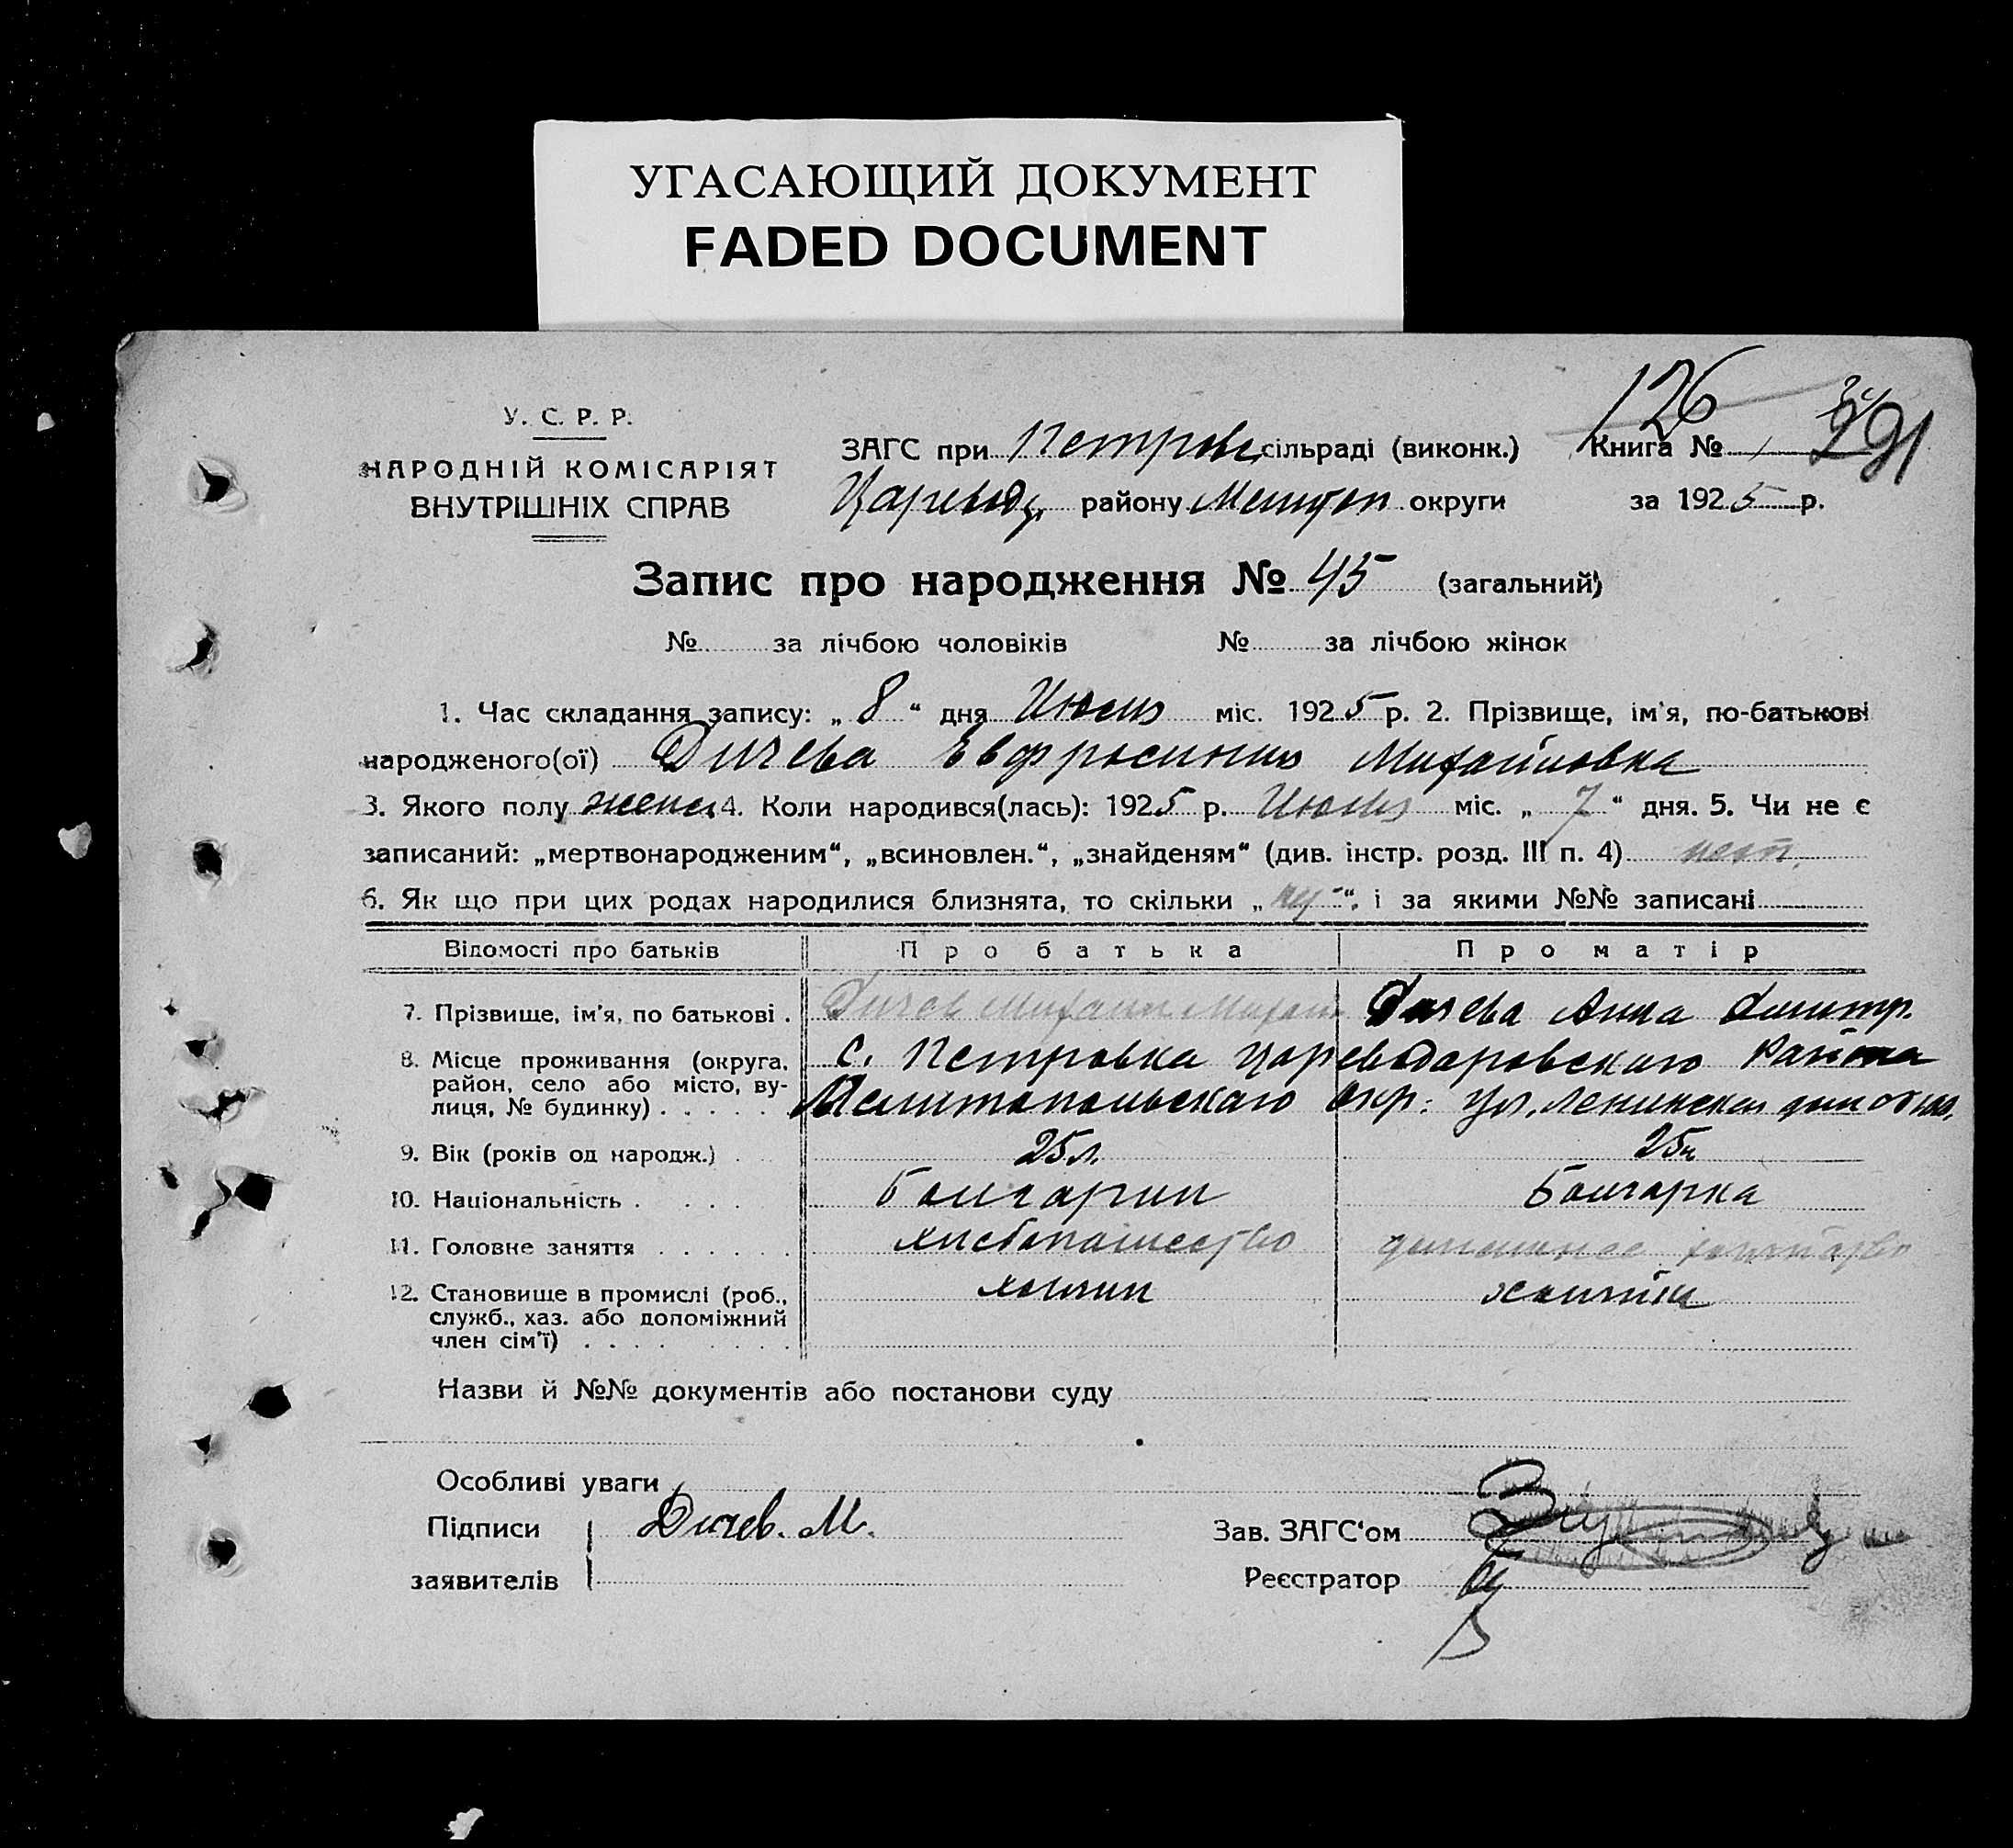 УГАСАЮЩИЙ ДОКУМЕНТ
FADED DOCUMENT
126
291
У. С. Р. Р.
НАРОДНІЙ КОМІСАРІЯТ
ВНУТРІШНІХ СПРАВ
ЗАГС при Петров. сільраді (виконк.) Книга № 1
Цареводр. району Мелитоп. округи за 1925 р.
Запис про народження № 45 (загальний)
№ за лічбою чоловіків № за лічбою жінок
1. Час складання запису: „ 8 “ дня Июля міс. 1925 р. 2. Прізвище, ім'я, по-батькові
народженого(ої) Дичева Евфросиния Михайловна
3. Якого полу женск 4. Коли народився(лась): 1925 р. Июля міс. „ 7 “ дня. 5. Чи не є
записаний: „мертвонародженим“, „всиновлен.“, „знайденям“ (див. інстр. розд. III п. 4) нет
6. Як що при цих родах народилися близнята, то скільки „ “, і за якими №№ записані
Відомості про батьків Про батька Про матір
7. Прізвище, ім'я, по батькові . Дичев Михаил Михайл Дичева Анна Дмитр.
8. Місце проживання (округа, район, село або місто, вулиця, № будинку) . . . . . с. Петровка Цареводаровскаго района
Мелитопольскаго Окр. ул. Ленинская дом
9. Вік (років од народж.) . 25 л. 25 л.
10. Національність . . . . Болгарин Болгарка
11. Головне заняття . . . . . . хлебопашество домашнее хозяйство
12. Становище в промислі (роб., служб., хаз. або допоміжний член сім'ї) . . . . хозяин хозяйка
Назви й №№ документів або постанови суду
Особливі уваги
Підписи Дичев. М. Зав. ЗАГС‘ом
заявителів Реєстратор